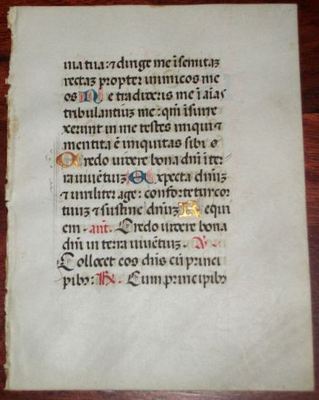 uia tua: ⁊ dirige me ī semitaʒ
rectaʒ propter inimicos me
os Ne tradideris me ī aīas
tribulantiuʒ me: qm̄ īsurre
xerunt in me testes iniqui ⁊
mentita ē iniquitas sibi
Credo uidere bona dn̄i ī te
ra uiuētiuʒ Expecta dn̄uʒ
⁊ uiriliter age: confortetur cor
tuuʒ ⁊ sustine dn̄uʒ Requi
em. ant̄. Credo uidere bona
dn̄i in terra uiuētiuʒ. V.
Collocet eos dn̄s cū princi
pibꝰ: R. Cum principibꝰ